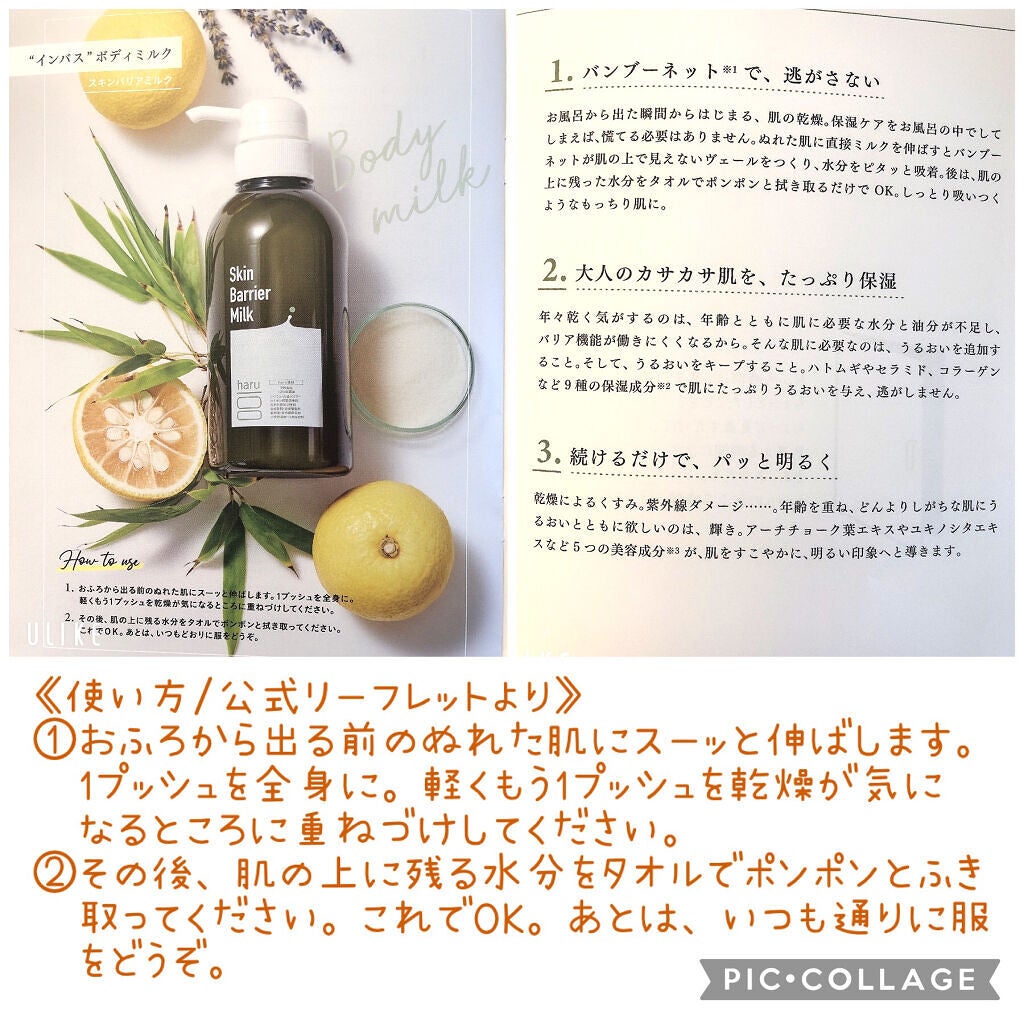 "インバス"ボディミルク
スキンバリアミルク
Body
milk
Skin
Barrier
Milk
haru
How to use
1. おふろから出る前のぬれた肌にスーッと伸ばします。1プッシュを全身に。
軽くもう1プッシュを乾燥が気になるところに重ねづけしてください。
2. その後、肌の上に残る水分をタオルでポンポンと拭き取ってください。
これでOK。あとは、いつもどおりに服をどうぞ。
ULIKE
1. バンブーネット※1で、逃がさない
お風呂から出た瞬間からはじまる、肌の乾燥。保湿ケアをお風呂の中でして
しまえば、慌てる必要はありません。ぬれた肌に直接ミルクを伸ばすとバンブー
ネットが肌の上で見えないヴェールをつくり、水分をピタッと吸着。後は、肌の
上に残った水分をタオルでポンポンと拭き取るだけでOK。しっとり吸いつく
ようなもっちり肌に。
2. 大人のカサカサ肌を、たっぷり保湿
年々乾く気がするのは、年齢とともに肌に必要な水分と油分が不足し、
バリア機能が働きにくくなるから。そんな肌に必要なのは、うるおいを追加す
ること。そして、うるおいをキープすること。ハトムギやセラミド、コラーゲン
など9種の保湿成分※2で肌にたっぷりうるおいを与え、逃がしません。
3. 続けるだけで、パッと明るく
乾燥によるくすみ。紫外線ダメージ……。年齢を重ね、どんよりしがちな肌にう
るおいとともに欲しいのは、輝き。アーチチョーク葉エキスやユキノシタエキ
スなど5つの美容成分※3が、肌をすこやかに、明るい印象へと導きます。
《使い方/公式リーフレットより》
①おふろから出る前のぬれた肌にスーッと伸ばします。
1プッシュを全身に。軽くもう1プッシュを乾燥が気に
なるところに重ねづけしてください。
②その後、肌の上に残る水分をタオルでポンポンとふき
取ってください。これでOK。あとは、いつも通りに服
をどうぞ。
PIC•COLLAGE